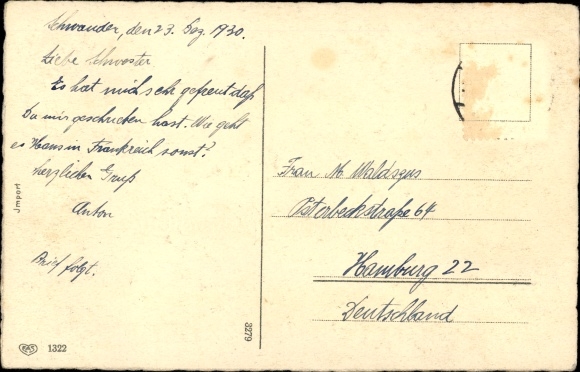 Schwanden, den 23. Dez. 1930.
Liebe Schwester
Es hat mich seh gefreut daß
Du mir geschrieben hast. Wie geht
es Hans in Frankreich sonst?
herzlichen Gruß
Anton
Brief folgt.
Jmport
1322
3279
Frau M. Waldszus
Osterbeckstraße 64
Hamburg 22
Deutschland